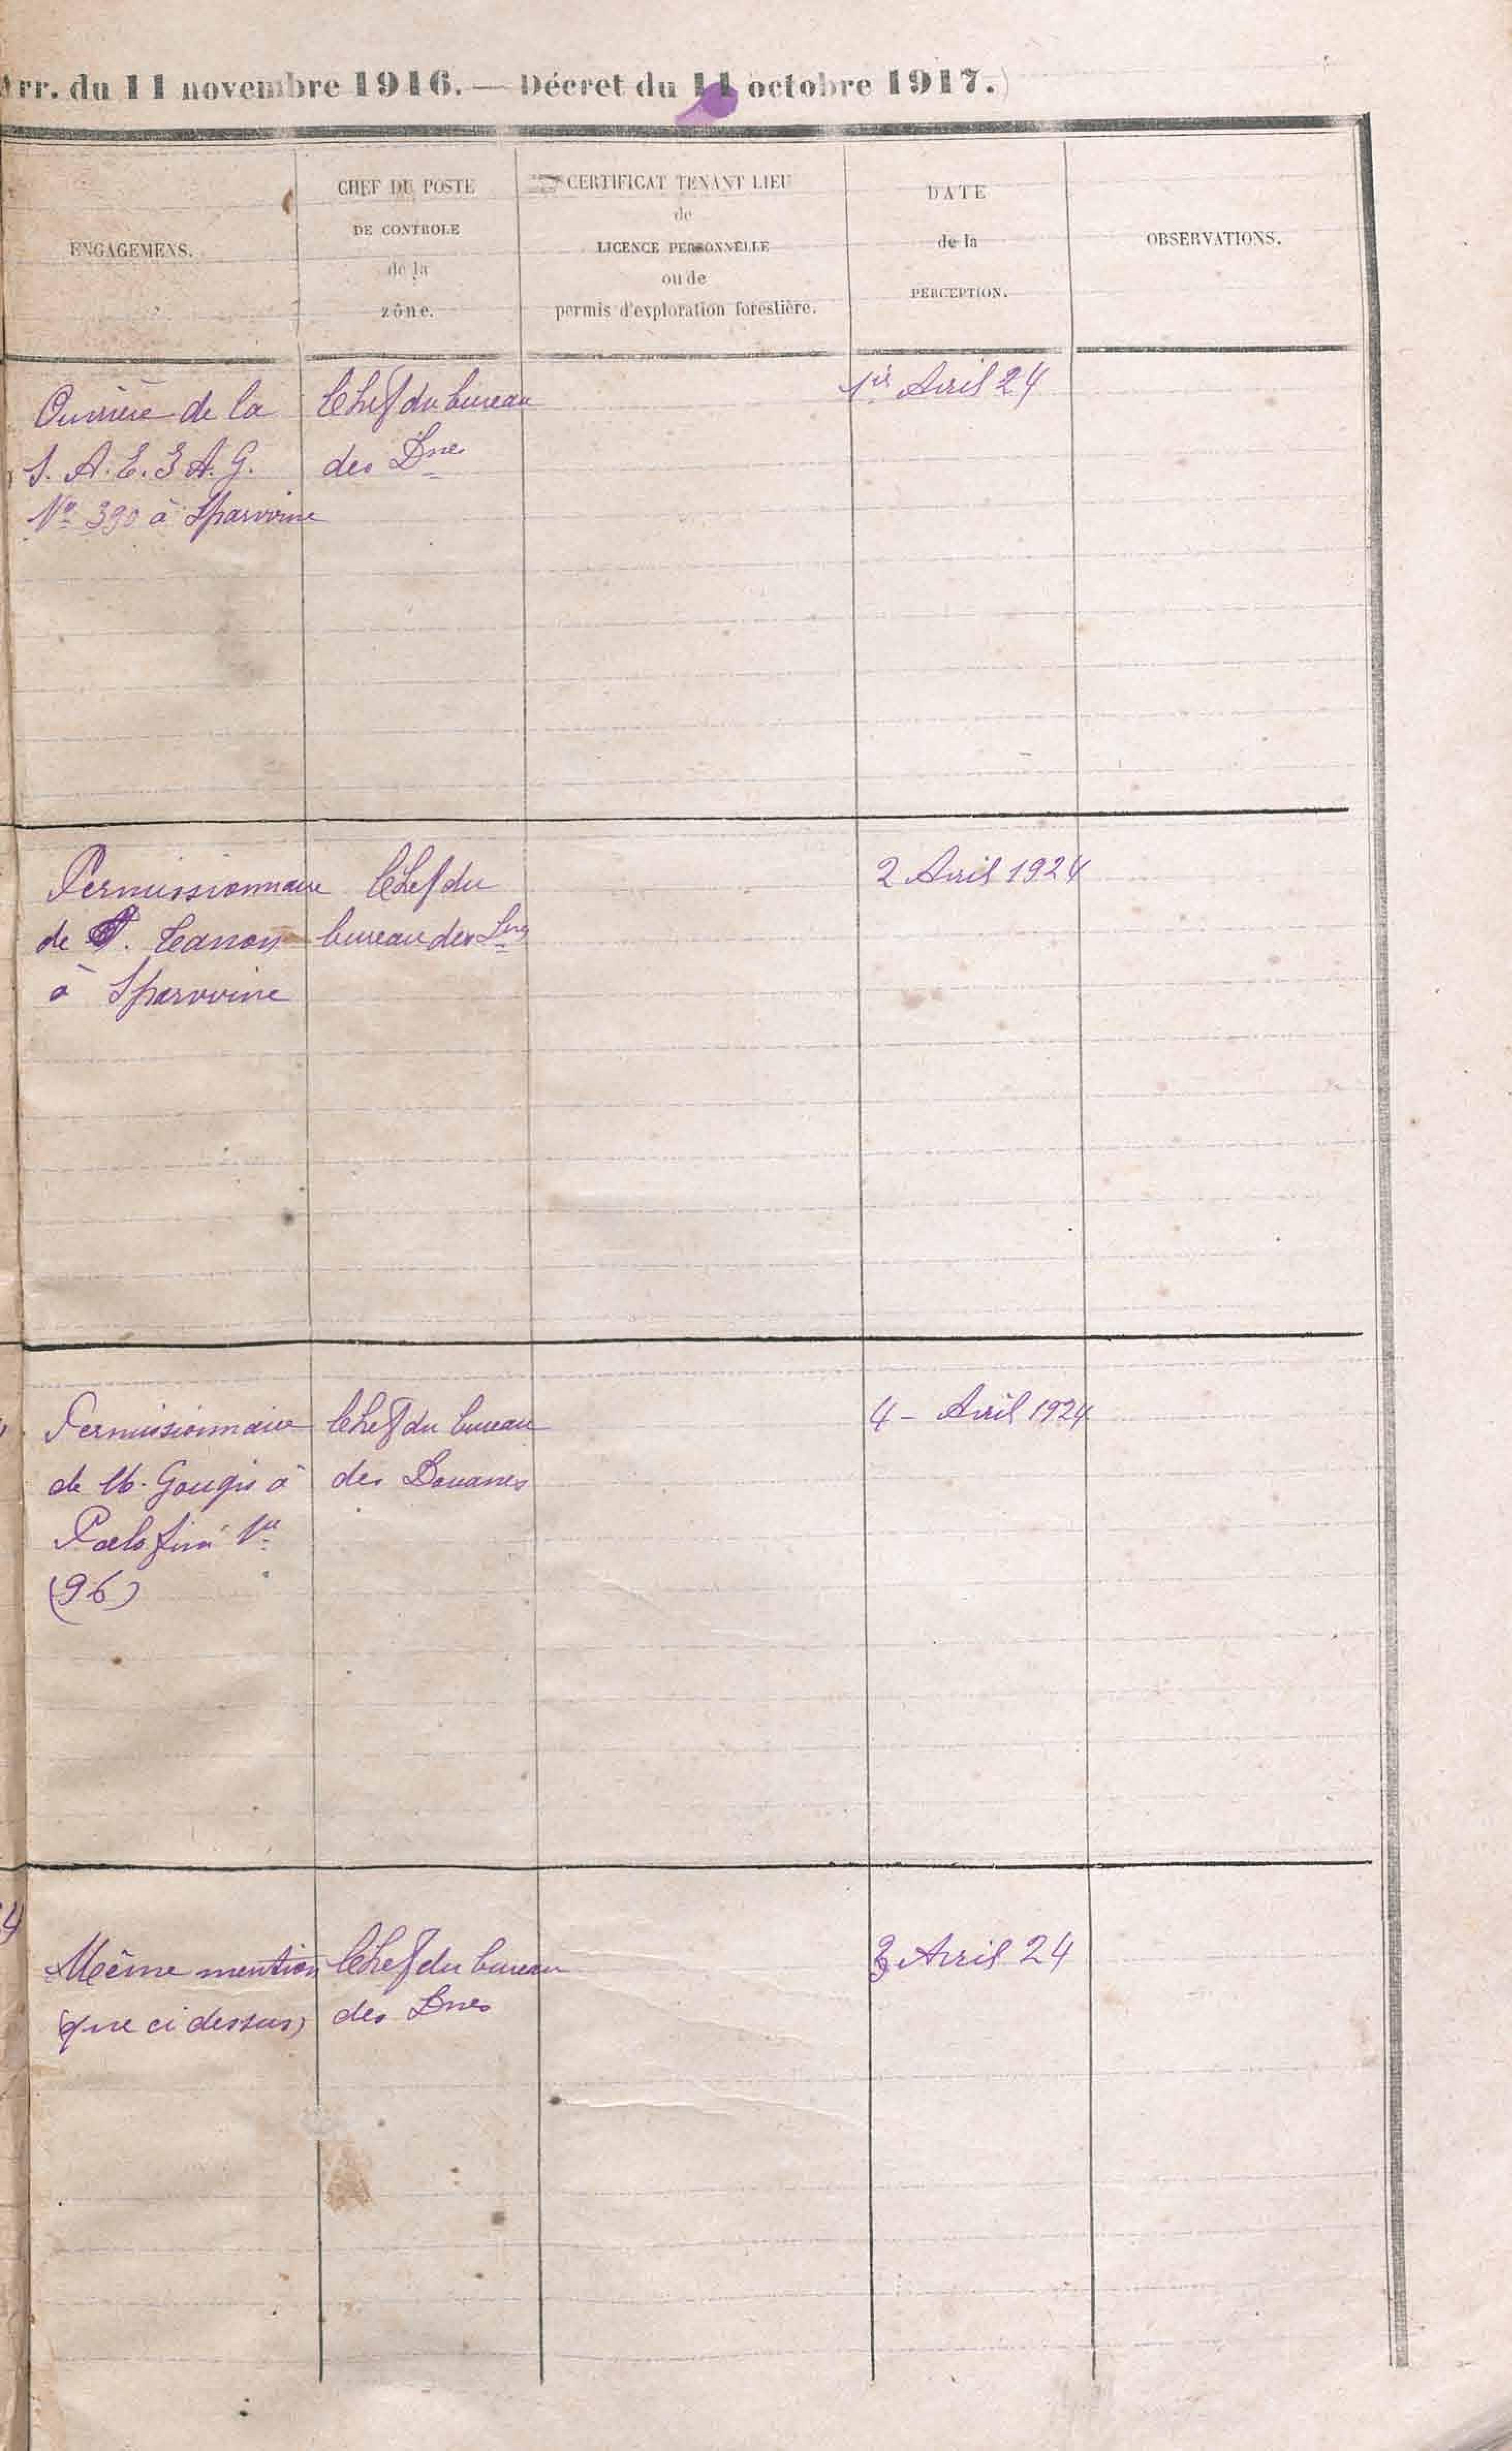 Arr. du 11 novembre 1916. — Décret du 11 octobre 1917.)
ENGAGEMENS.
CHEF DU POSTE
DE CONTROLE
de la
zône.
CERTIFICAT TENANT LIEU
de
LICENCE PERSONNELLE
ou de
permis d'exploration forestière.
DATE
de la
PERCEPTION.
OBSERVATIONS.
Ouvrière de la
S. A. E. 3 A. G.
No 390 à Sparwine
Chef du bureau
des Dnes
1er Avril 24
Permissionnaire
de P. Canon
à Sparwine
Chef du
bureau des Dnes
2 Avril 1924
Permissionnaire
de M. Gougis à
(96)
Chef du bureau
des Douanes
4 - Avril 1924
Même mention
(que ci dessus)
Chef du bureau
des Dnes
3 Avril 24